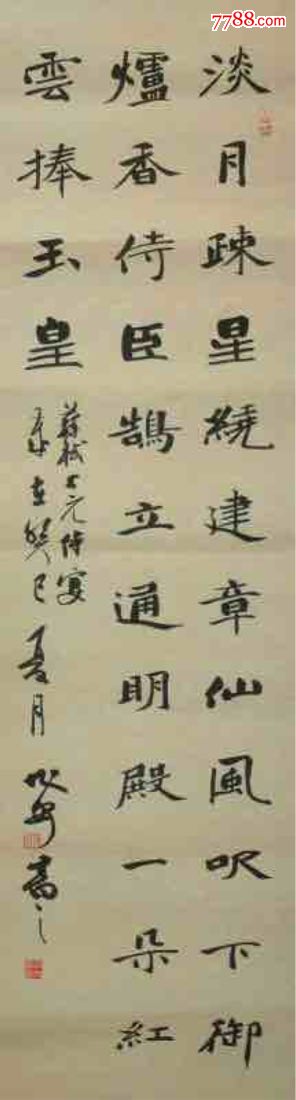 7788.com
淡月疎星繞建章仙風吹下御
爐香侍臣鵠立通明殿一朵紅
雲捧玉皇
蘇軾上元侍宴
在癸巳夏月 書之